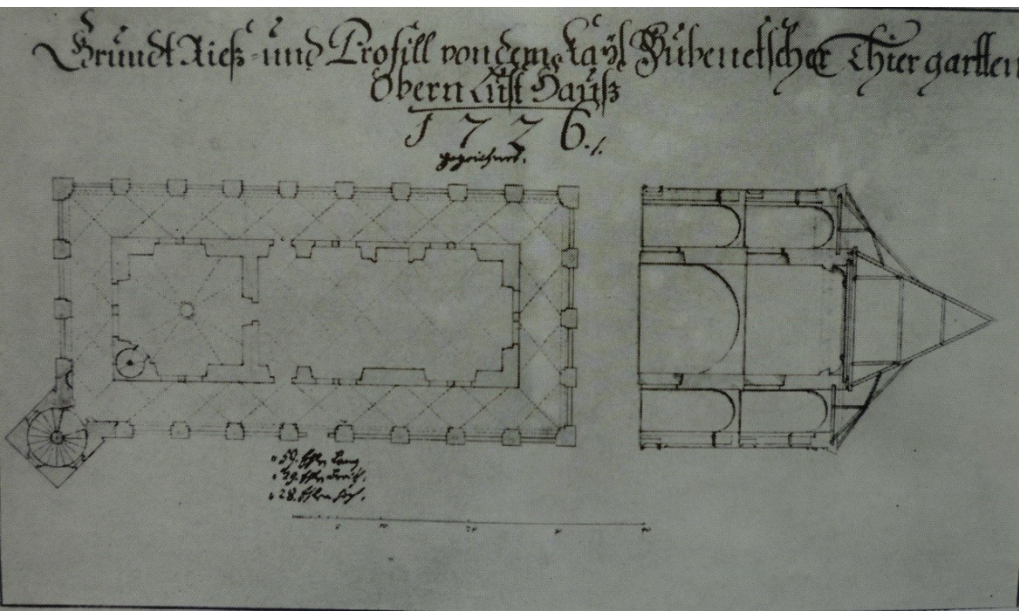 Grundt Rieß und Profill von dem Kayß Bubenetscher Thier gartten
Obern Lust Hauß
1726./.
gezeichnet.
Ehln Lang
Ehln Breith.
28. Ehln hoch.